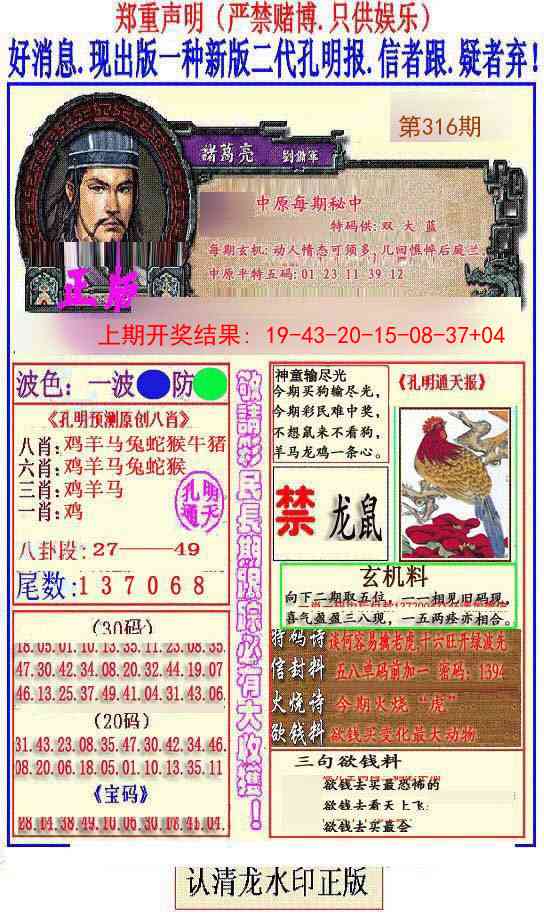 郑重声明（严禁赌博.只供娱乐）
好消息.现出版一种新版二代孔明报.信者跟.疑者弃！
第316期
諸葛亮 劉備軍
中原每期秘中
特码供:双 大 蓝
每期玄机:动人情态可须多,几回憔悴后庭兰.
中原平特五码:01 23 11 39 12
正版
上期开奖结果: 19-43-20-15-08-37+04
波色：一波 防
《孔明预测原创八肖》
八肖:鸡羊马兔蛇猴牛猪
六肖:鸡羊马兔蛇猴
三肖:鸡羊马
一肖:鸡
孔明
通天
八卦段:27——49
尾数:137068
(30码)
18.05.01.10.13.35.11.23.08.35.
47.30.42.34.08.20.32.44.19.07
46.13.25.37.49.41.04.31.43.06.
(20码)
31.43.23.08.35.47.30.42.34.46.
08.20.06.18.05.01.10.13.35.11
《宝码》
敬請彩民長期跟踪必有大收獲！
神童输尽光
今期买狗输尽光，
今期彩民难中奖，
不想鼠来不看狗，
羊马龙鸡一条心。
《孔明通天报》
禁 龙鼠
玄机料
向下二期取五位，一一相见旧码现，
喜气盈盈三八现，一五两痊亦相合。
特码诗 谈何容易擒老虎,十六旺开绿波先
信封料 五八单码首加一 密码：1394
火烧诗 今期火烧“虎”
欲钱料 欲钱买变化最大动物
三句欲钱料
欲钱去买最恐怖的
欲钱去看天上飞
欲钱去买最会
认清龙水印正版